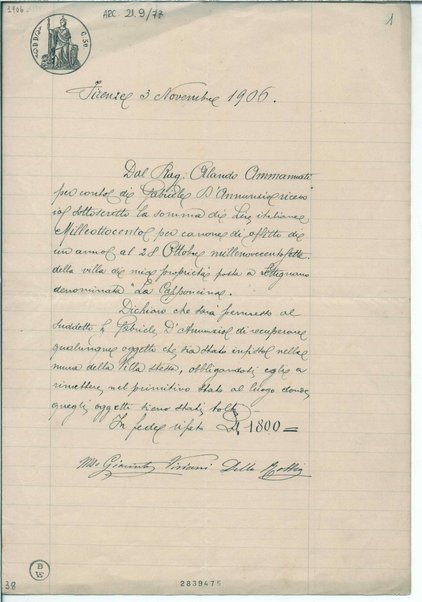 1906.
ARC. 21.9/77
1
C. 50
Firenze 3 Novembre 1906.
Dal Rag: Orlando Ammannati
per conto di Gabriele D'Annunzio ricevo
io sottoscritto la somma di Lire italiane
Milleottocento per canone di affitto di
un anno al 28 Ottobre millenovecentosette
della villa di mia proprietà posta a Settignano
denominata "La Capponcina.
Dichiaro che sarà permesso al
suddetto Gabriele D'Annunzio di recuperare
qualunque oggetto che sia stato infisso nelle
mura della Villa stessa, obbligandosi egli a
rimettere nel primitivo stato il luogo donde
quegli oggetti sieno stati tolti.
In fede ripeto £ 1800=
Giacinto Viviani Della Robbia
B
W
38
2839475